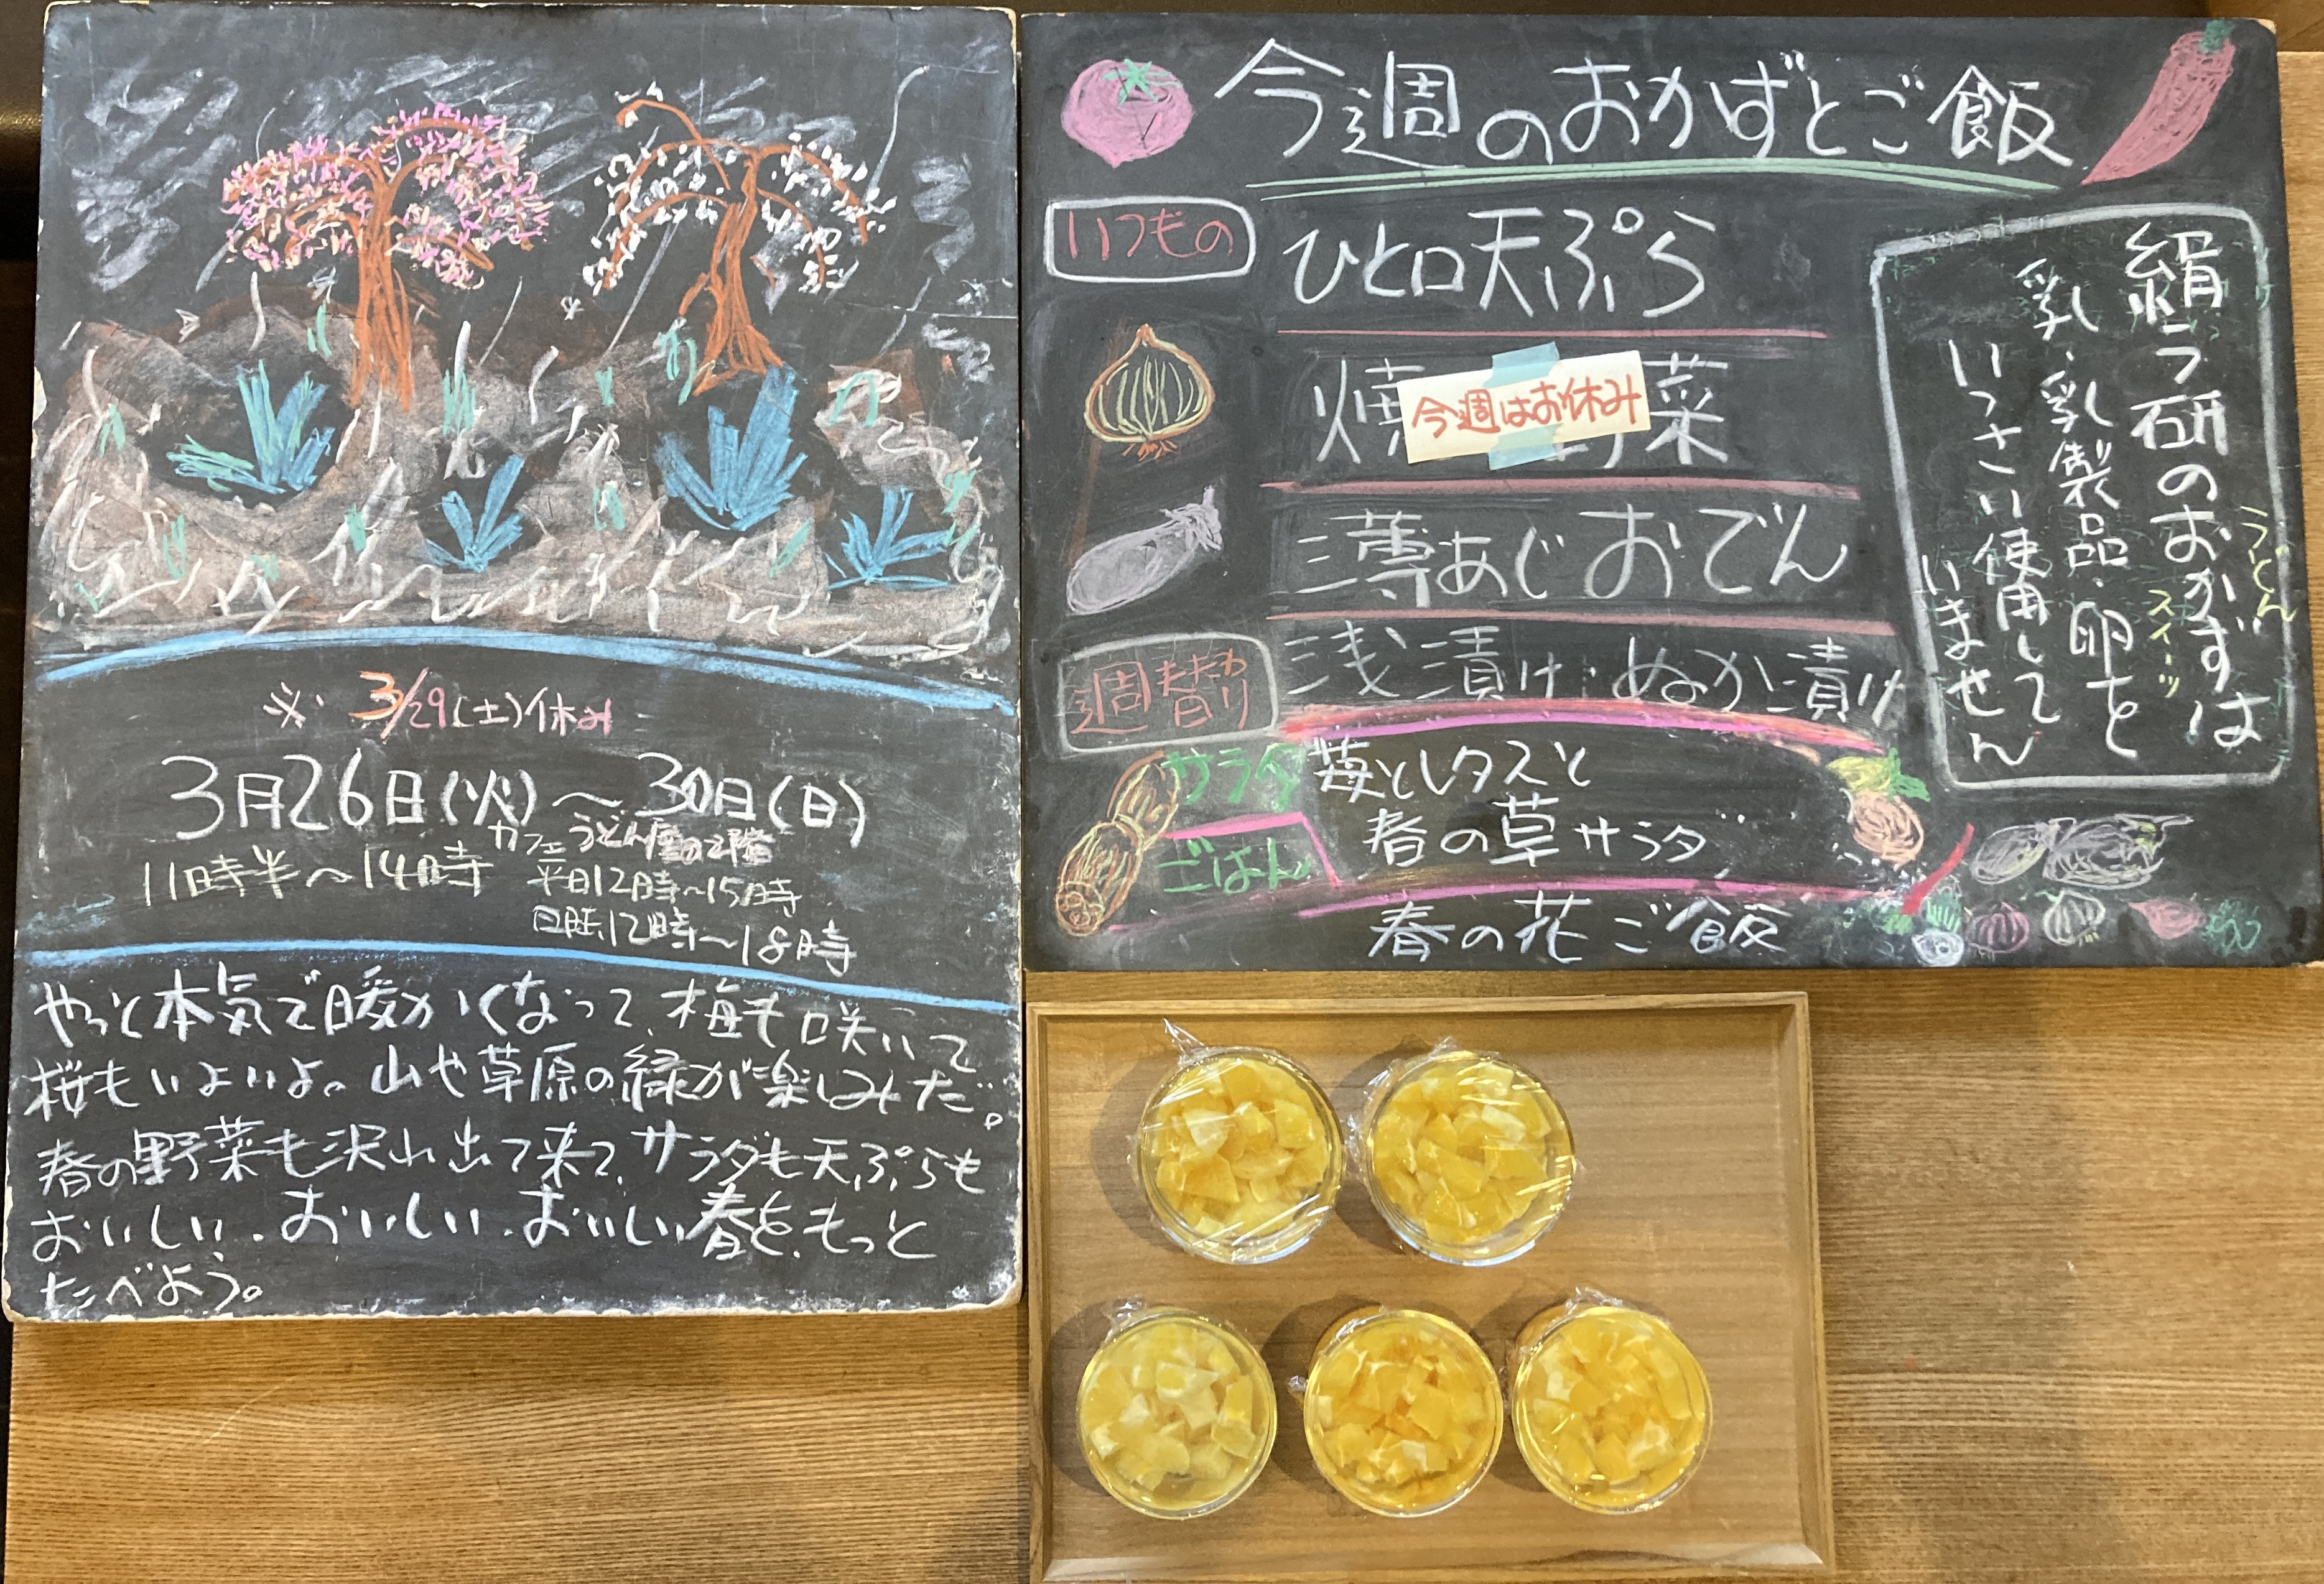 ※ 3/29(土)休み
3月26日(火)〜30日(日)
11時半〜14時
カフェうどん屋の2階
平日12時〜15時
日照12時〜18時
やっと本気で暖かくなって、梅も咲いて
桜もいよいよ。山や草原の緑が楽しみだ。
春の野菜も沢山出て来て、サラダも天ぷらも
おいしい、おいしい、おいしい春を、もっと
たべよう。
今週のおかずとご飯
いつもの
ひと口天ぷら
焼 菜
今週はお休み
あじおでん
浅漬け・ぬか漬け
週替り
サラダ
苺とレタスと
春の草サラダ
ごはん
春の花ご飯
絹ラ研のおかずは
うどん
スイーツ
乳・乳製品・卵を
いっさい使用して
いません